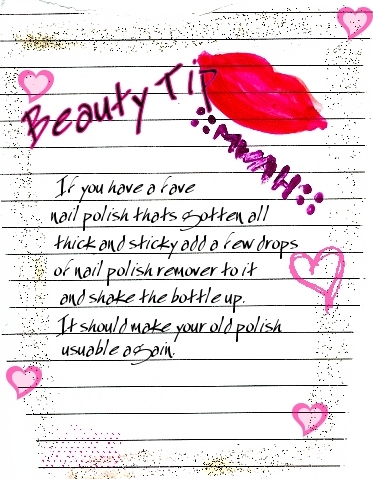 Beauty Tip
::MWAH::
If you have a fave
nail polish thats gotten all
thick and sticky add a few drops
of nail polish remover to it
and shake the bottle up.
It should make your old polish
usuable again.